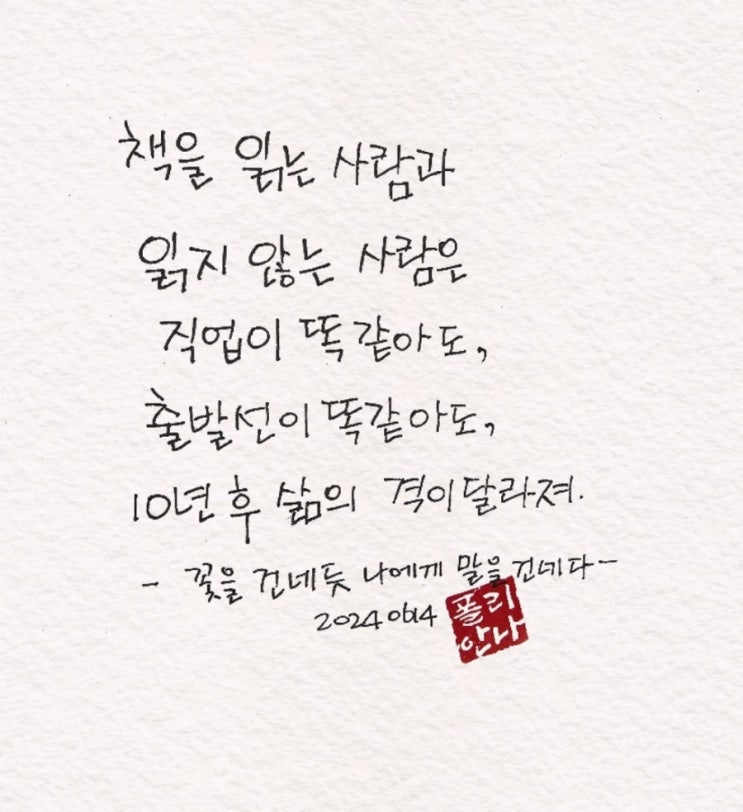 책을 읽는 사람과
읽지 않는 사람은
직업이 똑같아도,
출발선이 똑같아도,
10년 후 삶의 격이 달라져.
- 꽃을 건네듯 나에게 말을 건네다 -
2024 0614
폴리
안나